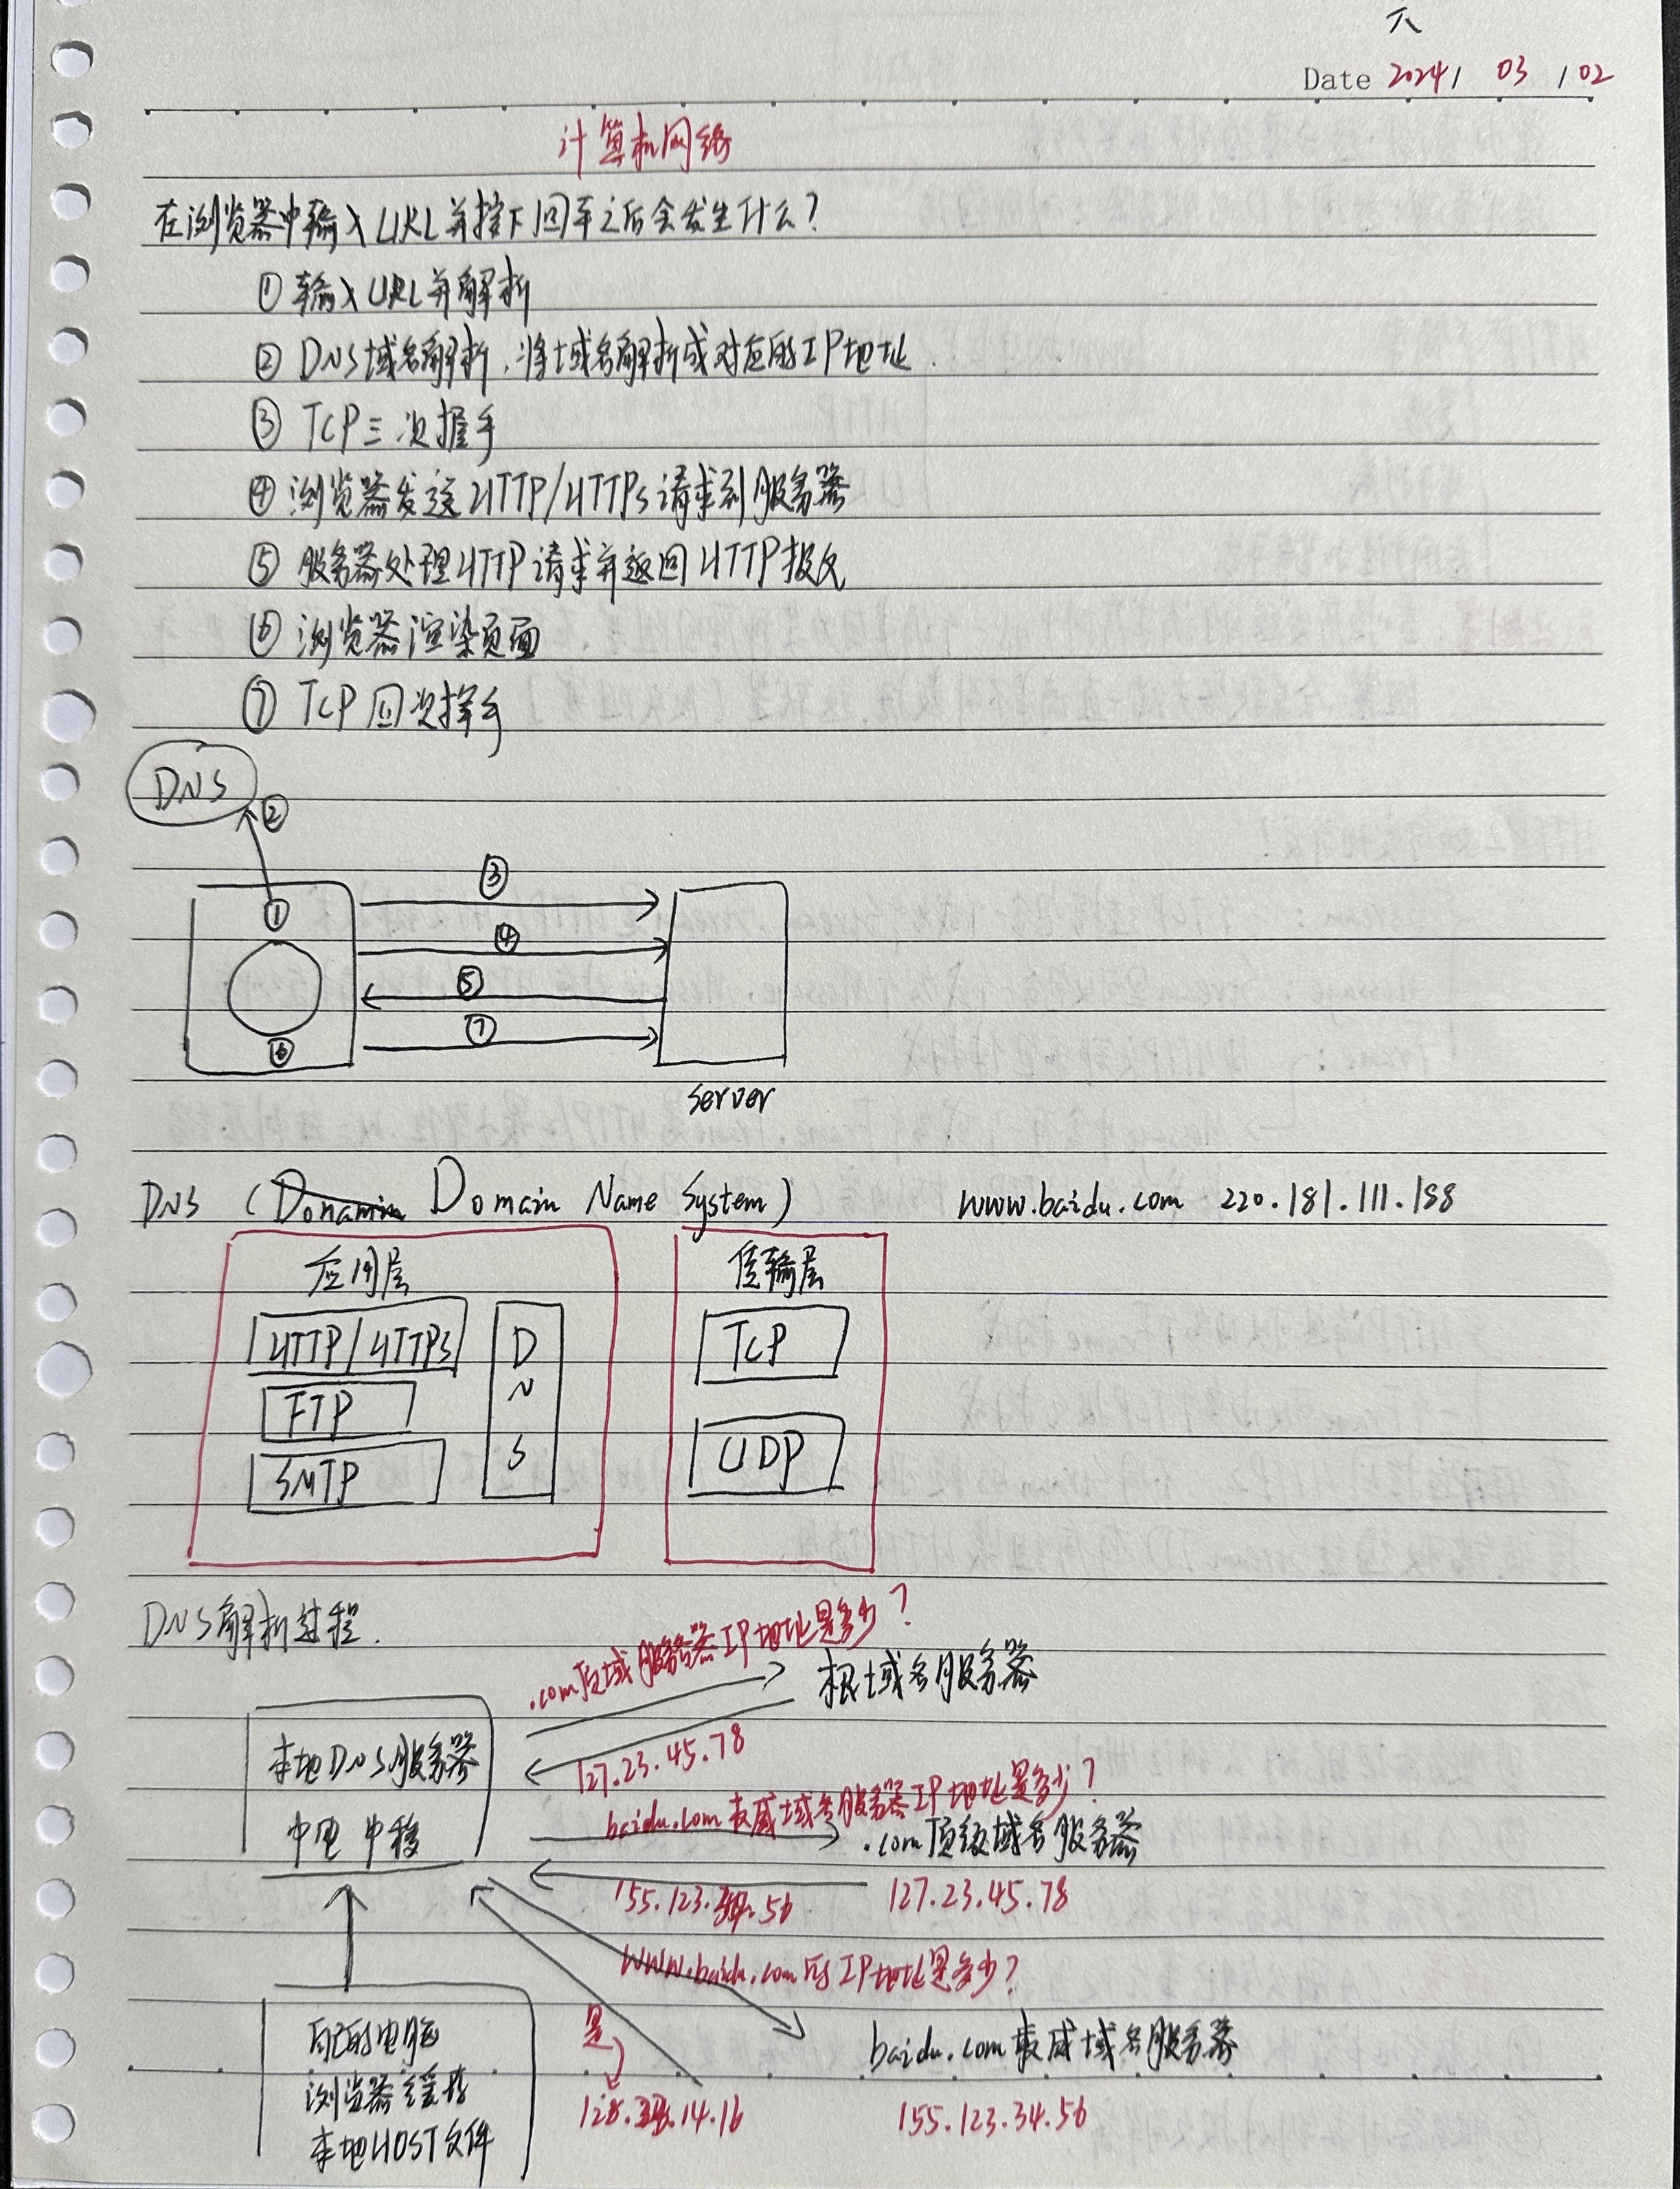 六
Date 2024 / 03 / 02
计算机网络
在浏览器中输入URL并按下回车之后会发生什么?
① 输入URL并解析
② DNS域名解析,将域名解析成对应的IP地址.
③ TCP三次握手
④ 浏览器发送HTTP/HTTPS请求到服务器
⑤ 服务器处理HTTP请求并返回HTTP报文
⑥ 浏览器渲染页面
⑦ TCP四次挥手
DNS
②
③
①
④
⑤
⑦
⑥
server
DNS (Domain Name System) www.baidu.com 220.181.111.188
应用层 传输层
HTTP/HTTPS DNS TCP
FTP
SMTP UDP
DNS解析过程.
.com顶域服务器IP地址是多少?
根域名服务器
127.23.45.78
本地DNS服务器
中电 中移
baidu.com权威域名服务器IP地址是多少?
.com顶级域名服务器
155.123.34.56 127.23.45.78
www.baidu.com的IP地址是多少?
自己的电脑
浏览器缓存
本地HOST文件
是
baidu.com权威域名服务器
14.16 155.123.34.56